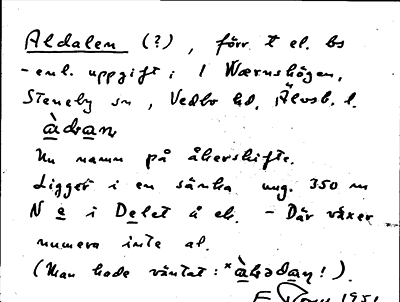 Aldalen (?), förr t el. bs
- enl. uppgift i 1 Wærnshögen,
Steneby sn, Vedbo hd, Älvsb. l.
Nu namn på åkerskifte.
Ligger i en sänka ung. 350 m
N e i Delet å ek. - Där växer
numera inte al.
(Man hade väntat:
1951